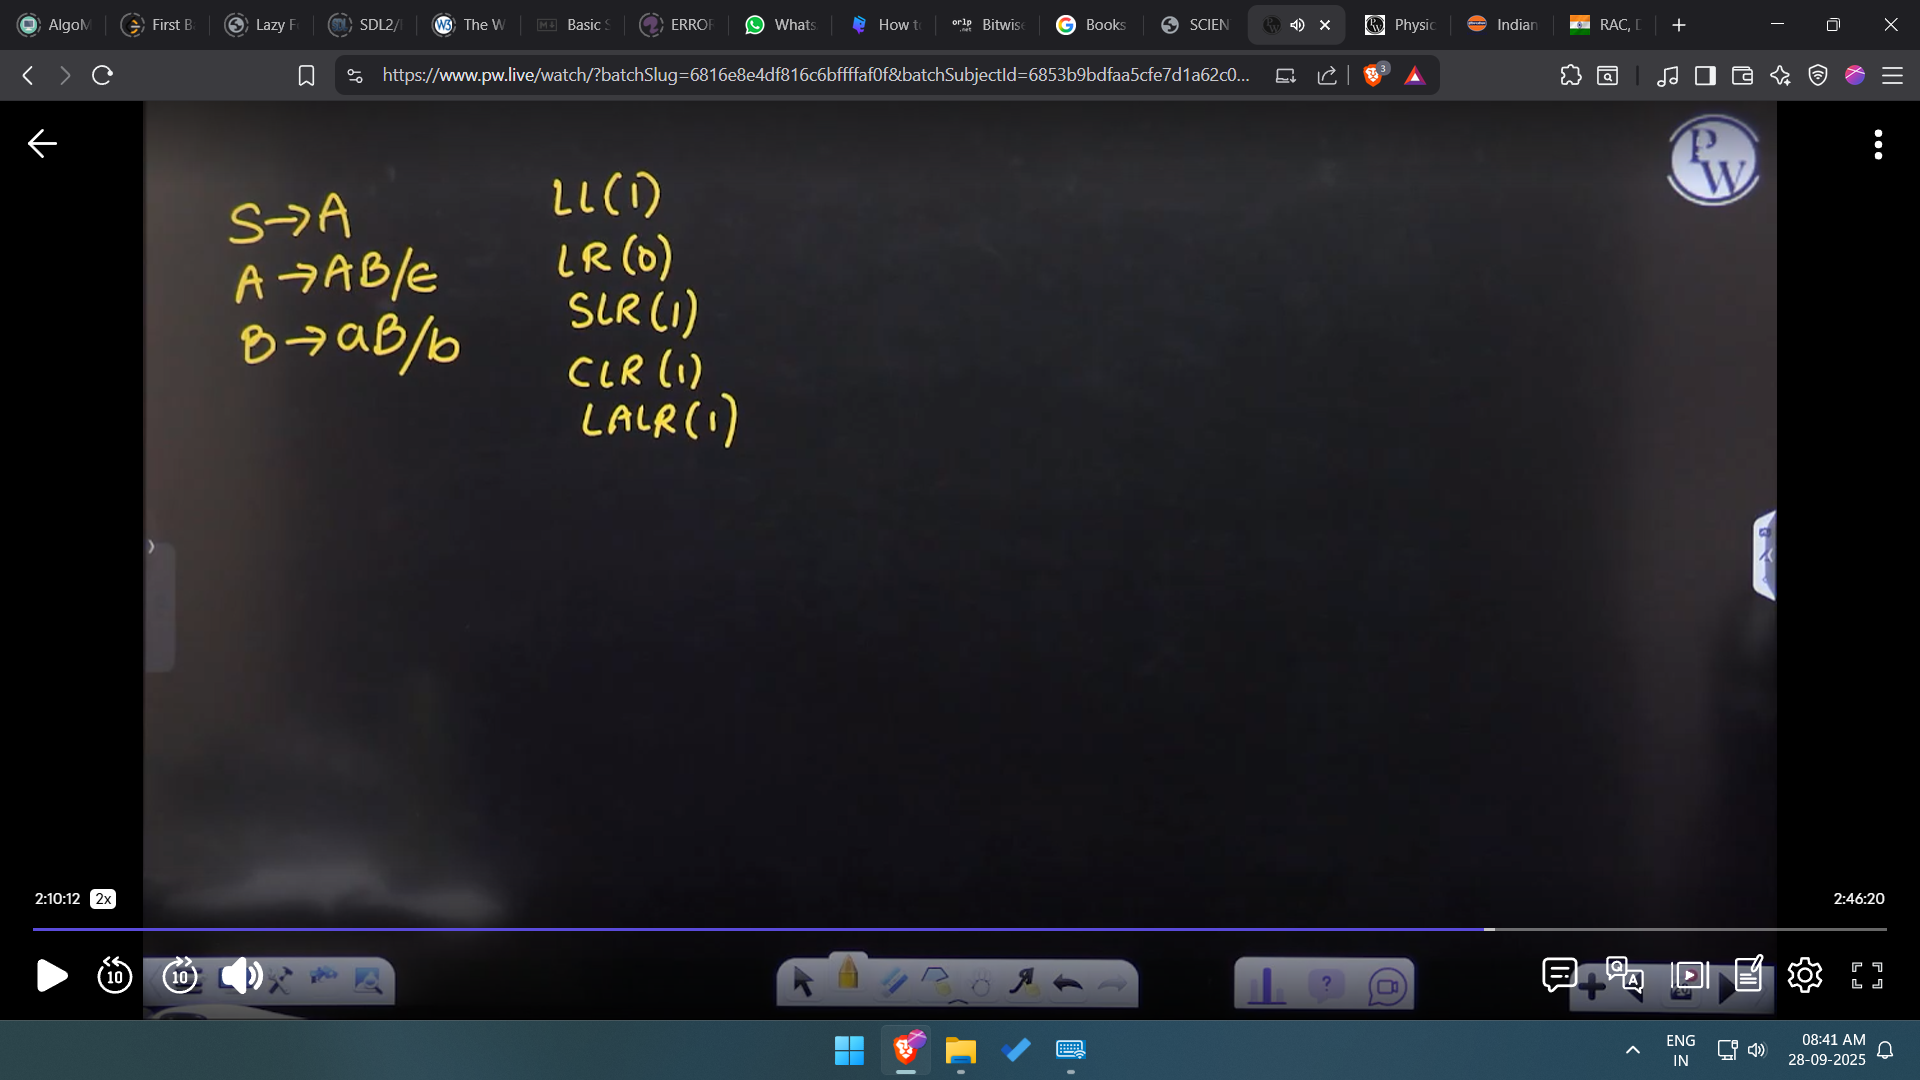 AlgoM
First B
Lazy F
SDL2/
The W
Basic S
ERROR
Whats
How t
Bitwise
Books
SCIEN
Physic
Indian
RAC, D
https://www.pw.live/watch/?batchSlug=6816e8e4df816c6bffffaf0f&batchSubjectId=6853b9bdfaa5cfe7d1a62c0...
3
PW
S→A
A→AB/ϵ
B→aB/b
LL(1)
LR(0)
SLR(1)
CLR(1)
LALR(1)
2:10:12 2x
2:46:20
10
10
ENG
IN
08:41 AM
28-09-2025